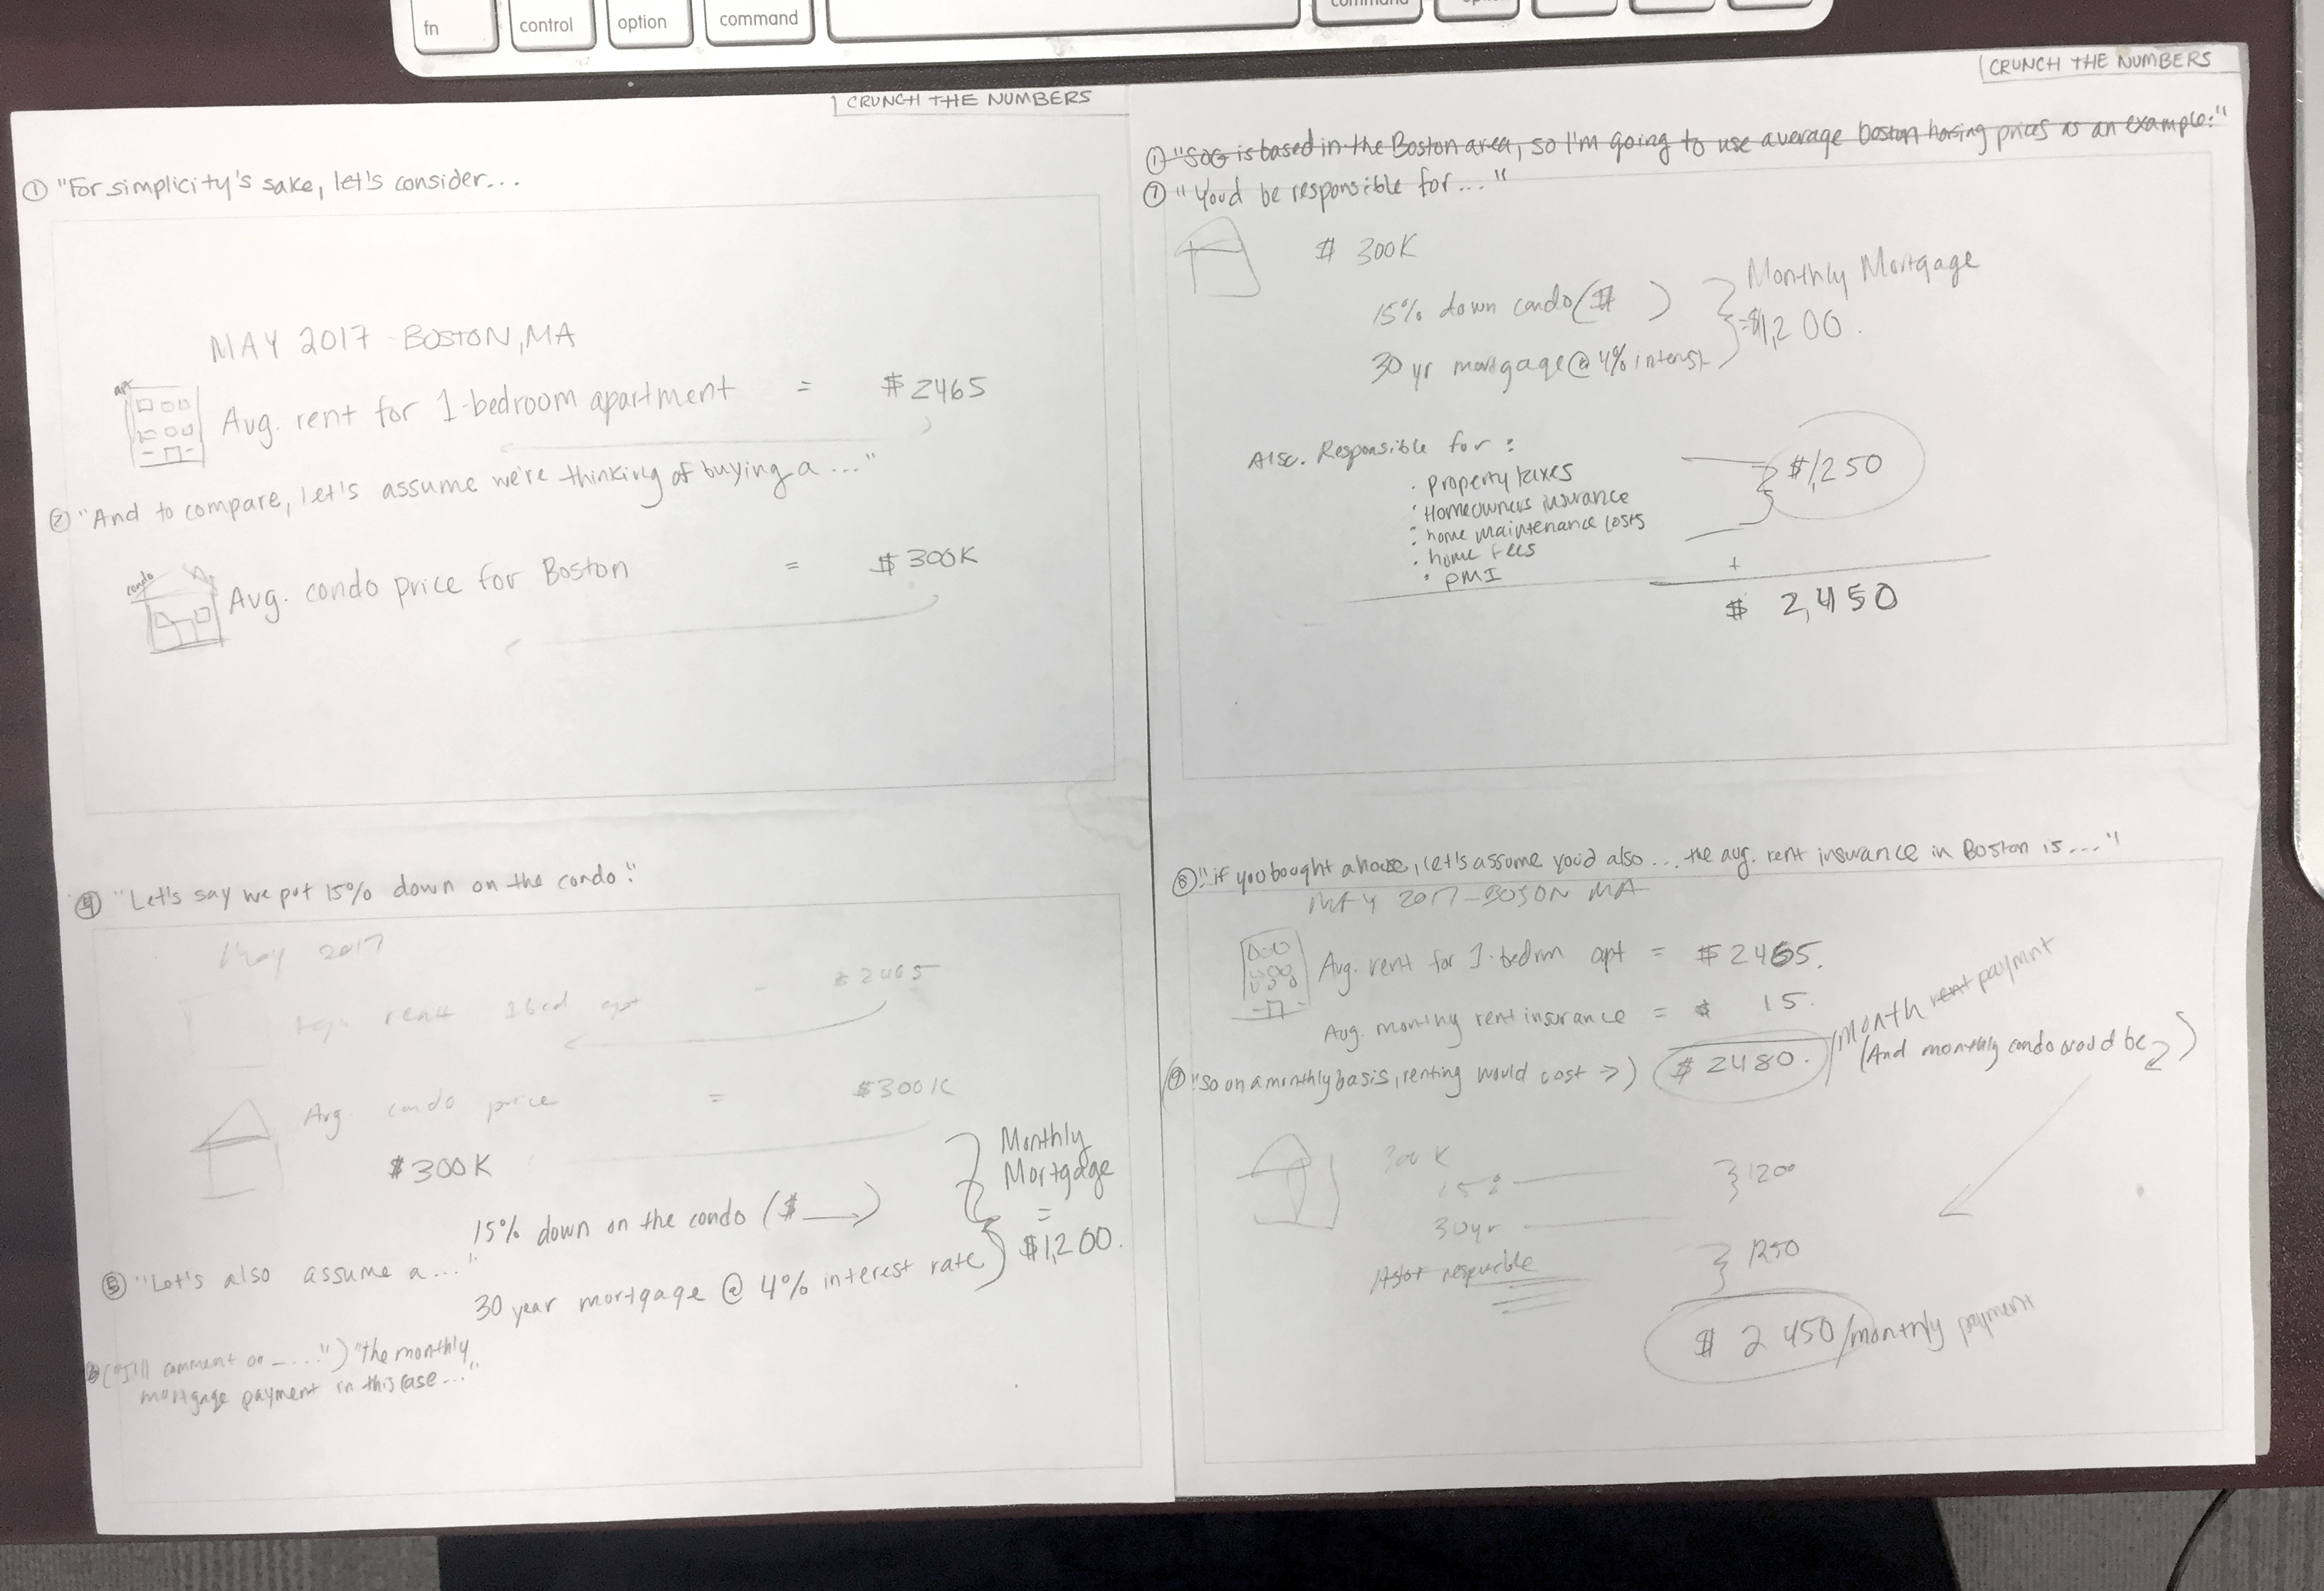 fn
control
option
command
command
CRUNCH THE NUMBERS
① "For simplicity's sake, let's consider...
MAY 2017 - BOSTON, MA
apt
Avg. rent for 1-bedroom apartment = $2465
② "And to compare, let's assume we're thinking of buying a ..."
condo
Avg. condo price for Boston = $300K
④ "Let's say we put 15% down on the condo."
May 2017
rent 1 bed apt - $2465
Avg. condo price = $300K
$300K
15% down on the condo ($ __ )
Monthly
Mortgage
=
$1,200.
⑤ "Let's also assume a ..."
30 year mortgage @ 4% interest rate
("I'll comment on ....") "the monthly
mortgage payment in this case..."
CRUNCH THE NUMBERS
① "SOG is based in the Boston area, so I'm going to use average boston housing prices as an example."
⑦ "You'd be responsible for ..."
$ 300K
15% down condo ($ )
30 yr mortgage @ 4% interest
Monthly Mortgage
=$1,200.
Also Responsible for :
· Property taxes
· Homeowners insurance
· home maintenance costs
· home fees
· PMI
$1,250
+
$ 2,450
⑧ "if you bought a house, let's assume you'd also ... the avg. rent insurance in Boston is ...."
MAY 2017 - BOSON MA
Avg. rent for 1-bedrm apt = $2465.
Avg. monthly rent insurance = $ 15.
⑨ "So on a monthly basis, renting would cost →) $2480. /month rent paymnt
(And monthly condo would be )
300K
15%
30yr
} 1200
Also responcible
} 1250
$ 2450/monthly payment